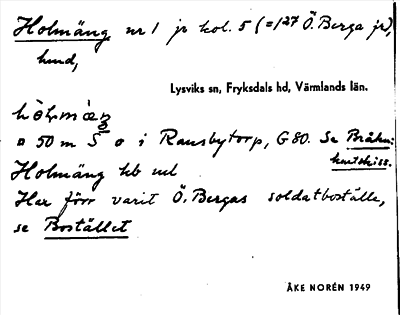 Holmäng nr 1 jr kol. 5 (=127 Ö. Berga jr),
hmd,
Lysviks sn, Fryksdals hd, Värmlands län.
¤ 50 m S o i Ransbytorp, G80. Se Bråhu:
kartskiss.
Holmäng hb ul
Har förr varit Ö. Bergas soldatboställe,
se Bostället
ÅKE NORÉN 1949